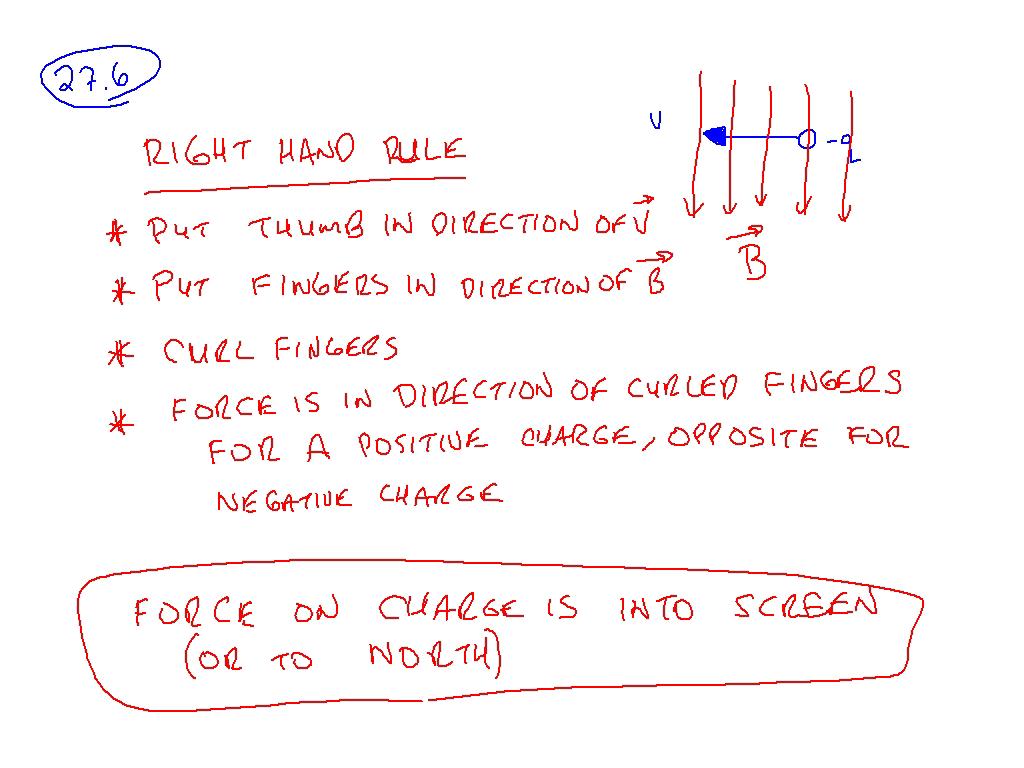 27.6
V
-q
B
RIGHT HAND RULE
* PUT THUMB IN DIRECTION OF V
* PUT FINGERS IN DIRECTION OF B
* CURL FINGERS
* FORCE IS IN DIRECTION OF CURLED FINGERS
FOR A POSITIVE CHARGE, OPPOSITE FOR
NEGATIVE CHARGE
FORCE ON CHARGE IS INTO SCREEN
(OR TO NORTH)